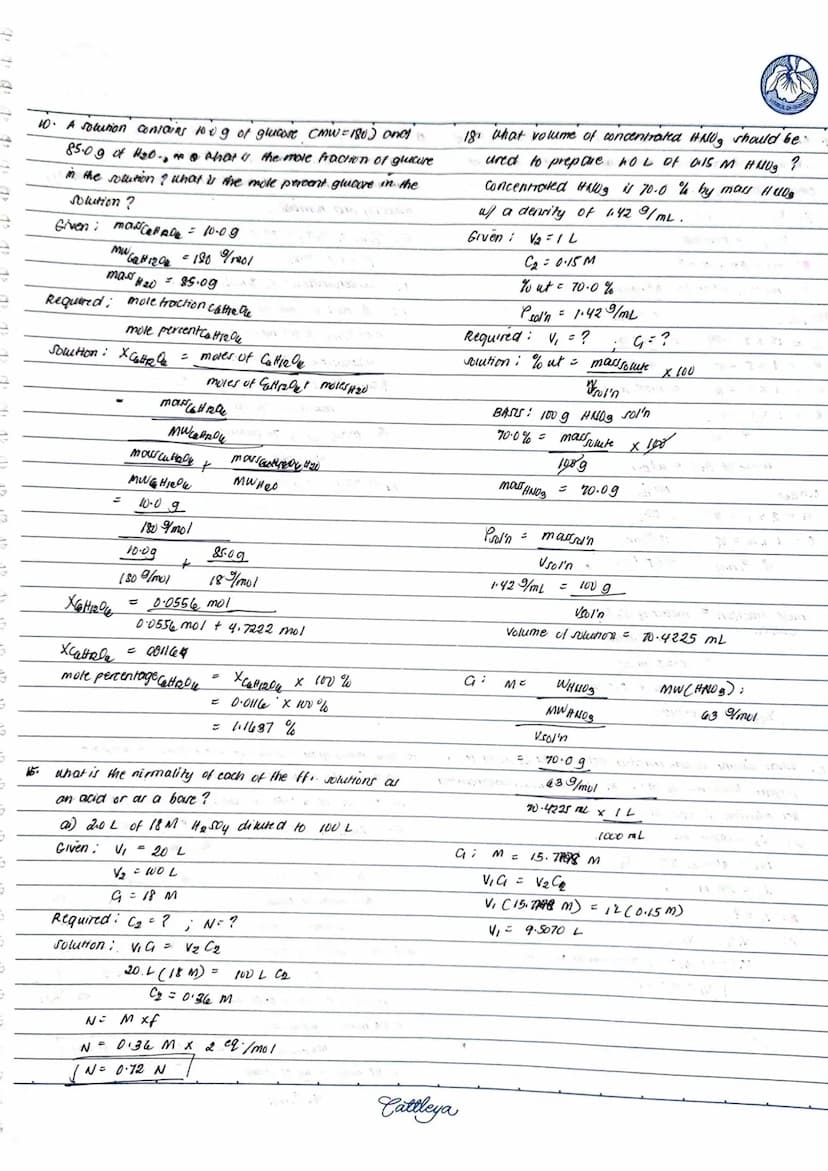 10. A solution contains 10.0 g of glucose (MW = 180) and
85.0 g of H2O. What is the mole fraction of glucose
in the solution? what is the mole percent glucose in the
solution?
Given: massC6H12O6 = 10.0g
MWC6H12O6 = 180 g/mol
massH2O = 85.0g
Required: mole fraction C6H12O6
mole percent C6H12O6
Solution: XC6H12O6 = moles of C6H12O6
moles of C6H12O6 + moles H2O
= massC6H12O6
MWC6H12O6
massC6H12O6 + mass H2O
MWC6H12O6 MWH2O
= 10.0 g
180 g/mol
10.0g + 85.0g
180 g/mol 18 g/mol
XC6H12O6 = 0.0556 mol
0.0556 mol + 4.7222 mol
XC6H12O6 =
mole percentage C6H12O6 = XC6H12O6 x 100 %
= 0.0116 x 100%
= 1.1637 %
15. what is the nirmality of each of the ff. solutions as
an acid or as a base?
a) 2.0 L of 18 M H2SO4 diluted to 100 L
Given: V1 = 20 L
V2 = 100 L
C1 = 18 M
Required: C2 = ? ; N = ?
solution: V1C1 = V2C2
20.L (18 M) = 100 L C2
C2 = 0.36 M
N = M x f
N = 0.36 M x 2 eq./mol
N = 0.72 N
18. what volume of concentrated HNO3 should be
used to prepare 1.0 L of 0.15 M HNO3?
Concentrated HNO3 is 70.0 % by mass HNO3
w/ a density of 1.42 g/mL.
Given: V2 = 1 L
C2 = 0.15 M
% wt = 70.0 %
ρsol'n = 1.42 g/mL
Required: V1 = ? ; C1 = ?
solution: % wt = mass solute x 100
sol'n
BASIS: 100 g HNO3 sol'n
70.0% = mass solute x 100
100g
mass HNO3 = 70.0g
ρsol'n = mass sol'n
Vsol'n
1.42 g/mL = 100 g
Vsol'n
Volume of solution = 70.4225 mL
C1: M = WHNO3 MW(HNO3):
MWHNO3 63 g/mol
Vsol'n
= 70.0 g
63 g/mol
70.4225 mL x 1 L
1000 mL
C1: M = M
V1C1 = V2C2
V1 ( M) = (0.15 M)
V1 = 9.5070 L
Cattleya